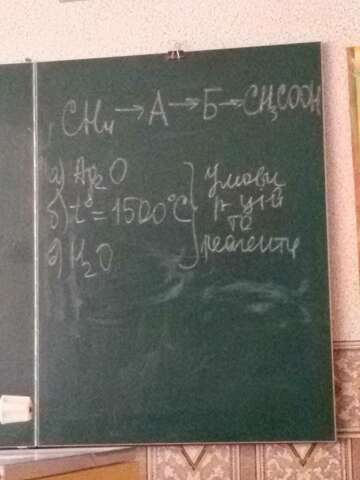 CH₄ → А → Б → CH₃COOH
а) Ag₂O
б) t° = 1500°C
в) H₂O
умови
р-цій
та
реагенти